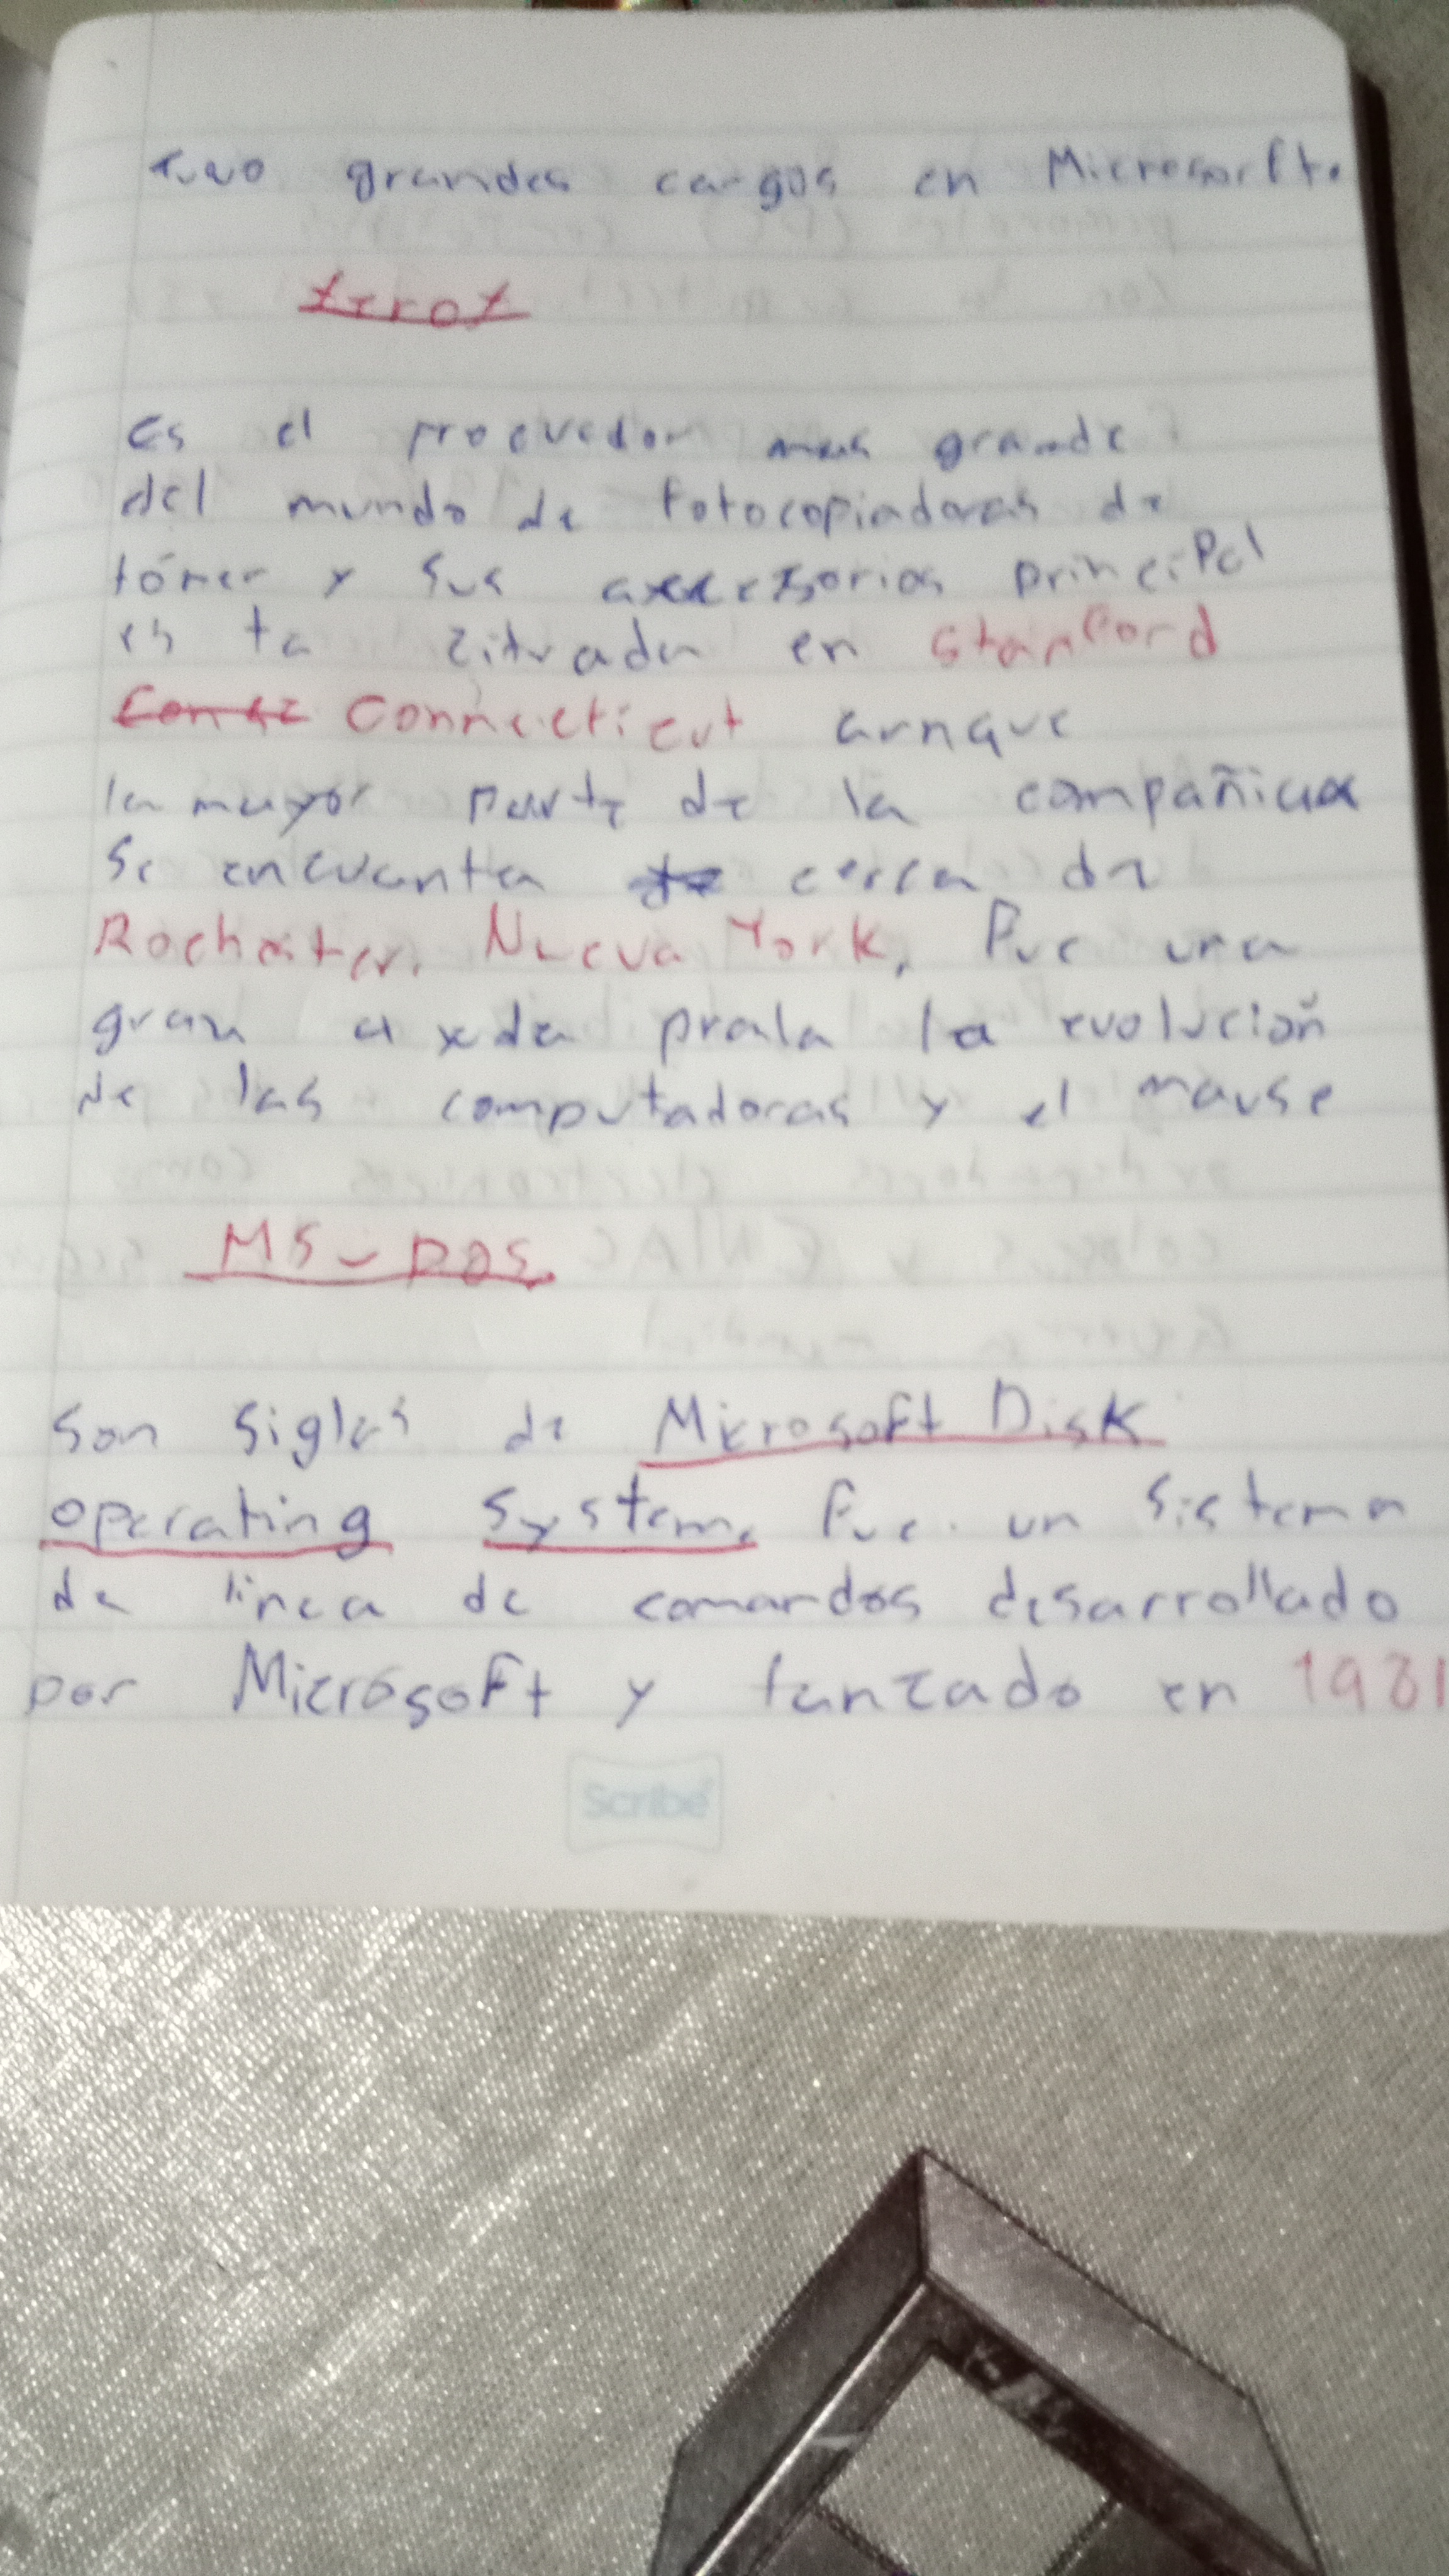 tuvo grandes cargos en Microsorft.
xerox
es el proevedor mas grande
del mundo de fotocopiadoras de
tóner y sus accesorios principal
es ta zituada en Stanford
Connecticut aunque
la mayor parte de la compañica
Se encuentra cerca de
Rochester, Nueva York, Fue una
gran a yuda prala la evolución
de las computadoras y el mause
MS-DOS
Son siglas de Microsoft Disk
operating System. Fue un Sistema
de linea de comandos desarrollado
por Microsoft y lanzado en 1981
Scribe